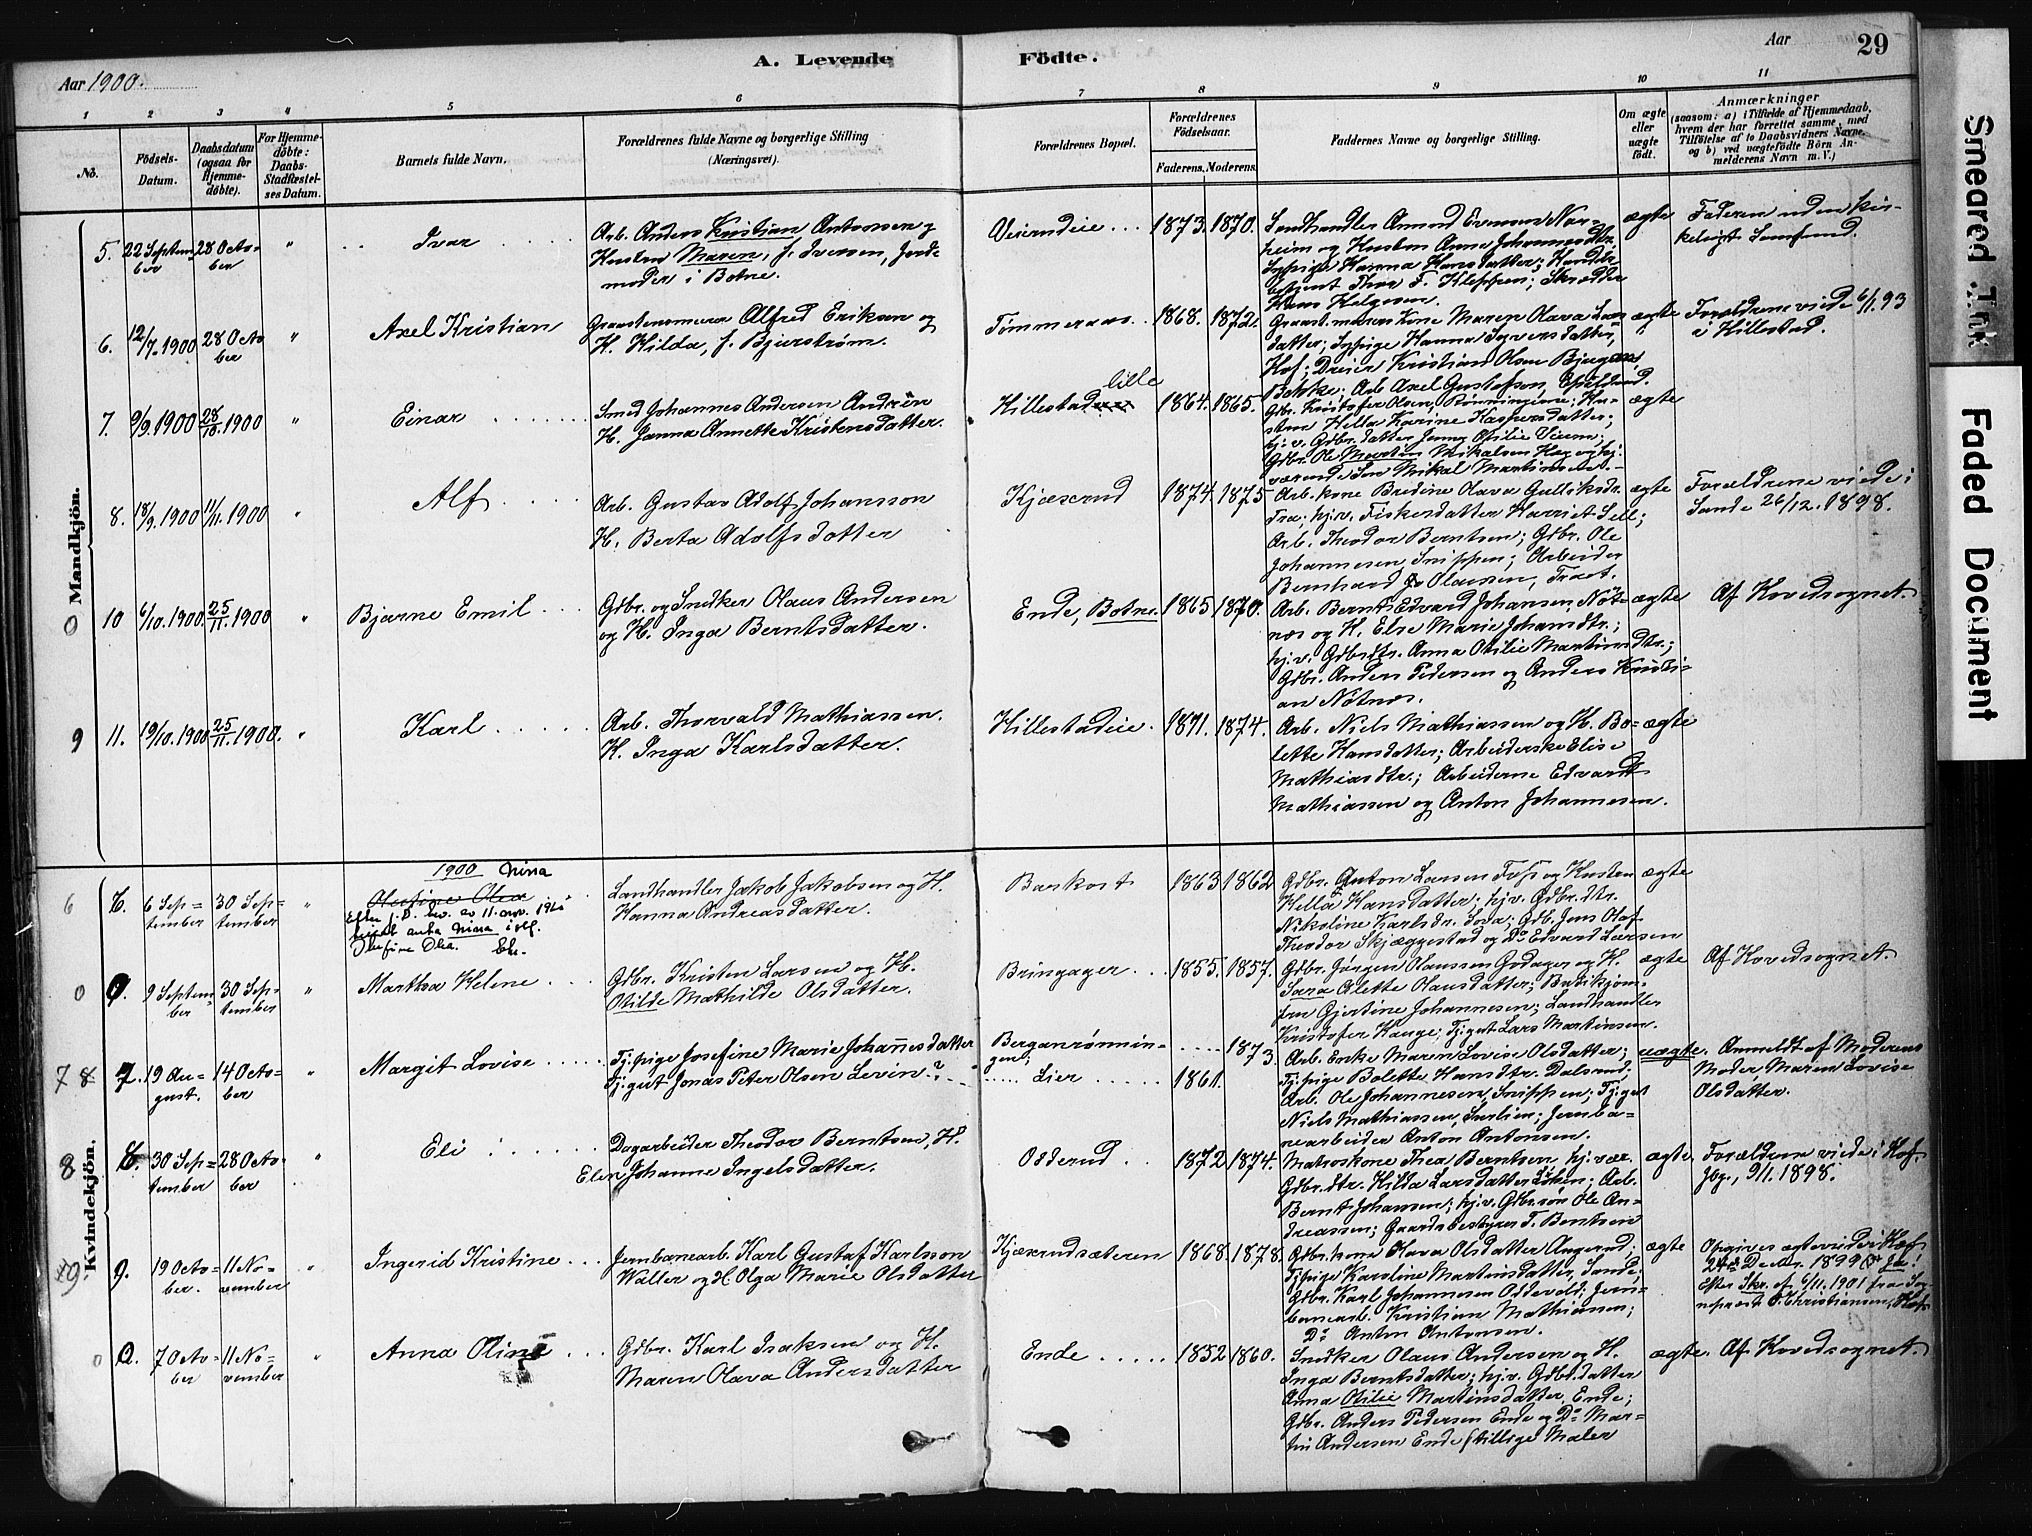 Aar 1900.
A. Levende
Födte.
Aar
29
1
2
3
4
5
6
7
8
9
10
11
No.
Födsels-
Datum.
Daabsdatum
(ogsaa for
Hjemme-
döbte).
For Hjemme-
döbte:
Daabs-
Stadfæstel-
ses Datum.
Barnets fulde Navn.
Forældrenes fulde Navne og borgerlige Stilling
(Næringsvei).
Forældrenes Bopæl.
Forældrenes
Födselsaar.
Faderens.
Moderens.
Faddernes Navne og borgerlige Stilling.
Om ægte
eller
uægte
födt.
Anmærkninger
(saasom: a) i Tilfælde af Hjemmedaab,
hvem der har forrettet samme, med
Tilföielse af to Daabsvidners Navne,
og b) ved uægtefödte Börn An-
melderens Navn m. V.)
Mandkjön.
5.
22 Septem-
ber
28 Octo-
ber
"
Ivar
Arb. Anders Kristian Antonsen og
Hustru Maren, f. Iversen, Jord-
moder i Botne.
Veierudeie
1873.
1870.
Landhandler Amund Evensen Nor-
heim og Hustru Anna Johannesdtr.
Sypige Hanna Hansdatter; Handels-
betjent Thor T. Kleppen; Skrædder
Hans Helgesen.
ægte
Faderen uden kir-
keligt Samfund.
6.
12/7. 1900
28 Octo-
ber
"
Axel Kristian
Graastensmurer Alfred Eriksen og
H. Hilda, f. Bjurstrøm.
Tømmeraas.
1868.
1872.
Graast.murers Kone Maren Olava Lars-
datter; Sypige Hanna Syversdatter,
Hof; Dreier Kristian Olsen Bjugaas,
Botske; Arb. Axel Gustafson, Eskilsrud.
ægte
Forældrene viede 6/1. 93
i Hillestad.
7.
9/9. 1900
28/10. 1900
"
Einar
Smed Johannes Andersen Andrén
H. Janna Annette Kristensdatter.
lille
Hillestad
1864.
1865.
Gdbr. Kristofer Olsen, Rønningerne; Hu-
stru Hella Karine Kaspersdatter;
hj.v. Gdbr.datter Jenny Otilie Vierem;
Gdbr. Ole Martin Mikalsen Hag og hj.
værend Søn Mikal Martinsen.
ægte
8.
18/9. 1900
11/11. 1900
"
Alf
Arb. Gustav Adolf Johansson
H. Berta Adolfsdatter
Kjæserud
1874.
1875
Arb. kone Bredine Olava Gulliksdr.
Fra; hj.v. Fiskersdatter Harriet Sell;
Arb. Theodor Berntsen; Gdbr. Ole
Johannesen Snippen; Arbeider
Bernhard Olaussen, Traet.
ægte
Forældrene viede i
Sande 26/12. 1898.
0
10
6/10. 1900.
25/11. 1900
"
Bjarne Emil
Gdbr. og Snedker Olaus Andersen
og H. Inga Berntsdatter.
Ende, Botne.
1865
1870.
Arb. Bernt Edvard Johansen Nøt-
næs og H. Else Marie Johansdtr.;
hj.v. Gdbrdtr. Anna Otilie Martinsdtr.;
Gdbr. Anders Pedersen og Anders Kristi-
an Nøtnæs.
ægte
Af Hovedsognet.
9
11.
19/10. 1900
25/11. 1900.
"
Karl
Arb. Thorvald Mathiassen.
H. Inga Karlsdatter.
Hillestadeie.
1871.
1874.
Arb. Niels Mathiassen og H. Bo-
lette Hansdatter; Arbeiderske Elise
Mathiasdtr.; Arbeiderne Edvardt
Mathiassen og Anton Johannesen.
ægte
Kvindekjön.
6
6 Sep-
tember
30 Sep-
tember
"
1900 Nina
Olufine Olea
Landhandler Jakob Jakobsen og H.
Hanna Andreasdatter.
Barkost
1863
1862
Gdbr. Anton Larsen Fuss og Hustru
Hella Hansdatter; hj.v. Gdbr.dtr.
Nikoline Karlsdr. Sora; Gdb. Jens Olaf
Theodor Skjæggestad og Do Edvard Larsen
ægte
0
9 Septem-
ber
30 Sep-
tember
"
Martha Helene
Gdbr. Kristen Larsen og H.
Otilde Mathilde Olsdatter.
Bringager
1855.
1857.
Gdbr. Jørgen Olaussen Godager og H.
Sara Olette Olausdatter; Butikjom-
fru Gjertine Johannesen; Landhandler
Kristofer Hauge; Tj.gut Lars Martinsen.
ægte
Af Hovedsognet.
7 8
7.
19 Au-
gust.
14 Octo-
ber
"
Margit Lovise
Tj.pige Josefine Marie Johannesdatter
Tj.gut Jonas Peter Olsen Levin?
Berganrønnin-
gen;
Lier
1861.
1873.
Arb. Enke Maren Lovise Olsdatter;
Tj.pige Bolette Hansdtr. Dalsrud;
Arb. Ole Johannesen, Snippen; Tj.gut
Niels Mathiassen, Surlien; Jernba-
nearbeider Anton Antonsen.
uægte.
Anmeldt af Moderens
Moder, Maren Lovise
Olsdatter.
8
8.
30 Sep-
tember
28 Octo-
ber
"
Eli
Dagarbeider Theodor Berntsen, H.
Elen Johanne Ingelsdatter.
Odderud
1872
1874.
Matroskone Thea Berntsen, hj.vær.
Gdbr.dtr. Hilda Larsdatter Løken; Arb.
Bernt Johansen; hj.v. Gdbr.søn Ole An-
dreassen; Gaardsbestyrer T. Berntsen
ægte
Forældrene viede i Hof
Jbg., 9/1. 1898.
9
9.
19 Octo-
ber.
11 No-
vember
"
Ingerid Kristine
Jernbanearb. Karl Gustaf Karlsson
Walter og H Olga Marie Olsdatter
Kjæserudsæteren
1868.
1878.
Gdbr. kone Olava Olsdatter Angerud;
Tj.pige Karoline Martinsdatter, Sande;
Gdbr. Karl Johannesen Oddevold; Jern-
banearb. Kristian Mathisen;
Do Anton Antonsen.
ægte
Opgives ægteviede i Hof
24de Decbr. 1899. Ja!
Efter Skr. af 6/11. 1901 fra Sog-
nepræst O. Christiansen, Hof.
0
7 Octo-
ber
11 No-
vember
"
Anna Oline
Gdbr. Karl Isaksen og H.
Maren Olava Andersdatter
Ende
1852
1860.
Snedker Olaus Andersen og H.
Inga Berntsdatter; hj.v. Gdbr.datter
Anna Otilie Martinsdatter, Ende;
Gdbr. Anders Pedersen Ende og Do Mar-
tin Andersen Ende
ægte.
Af Hovedsognet.
Smeared Ink
Faded Document